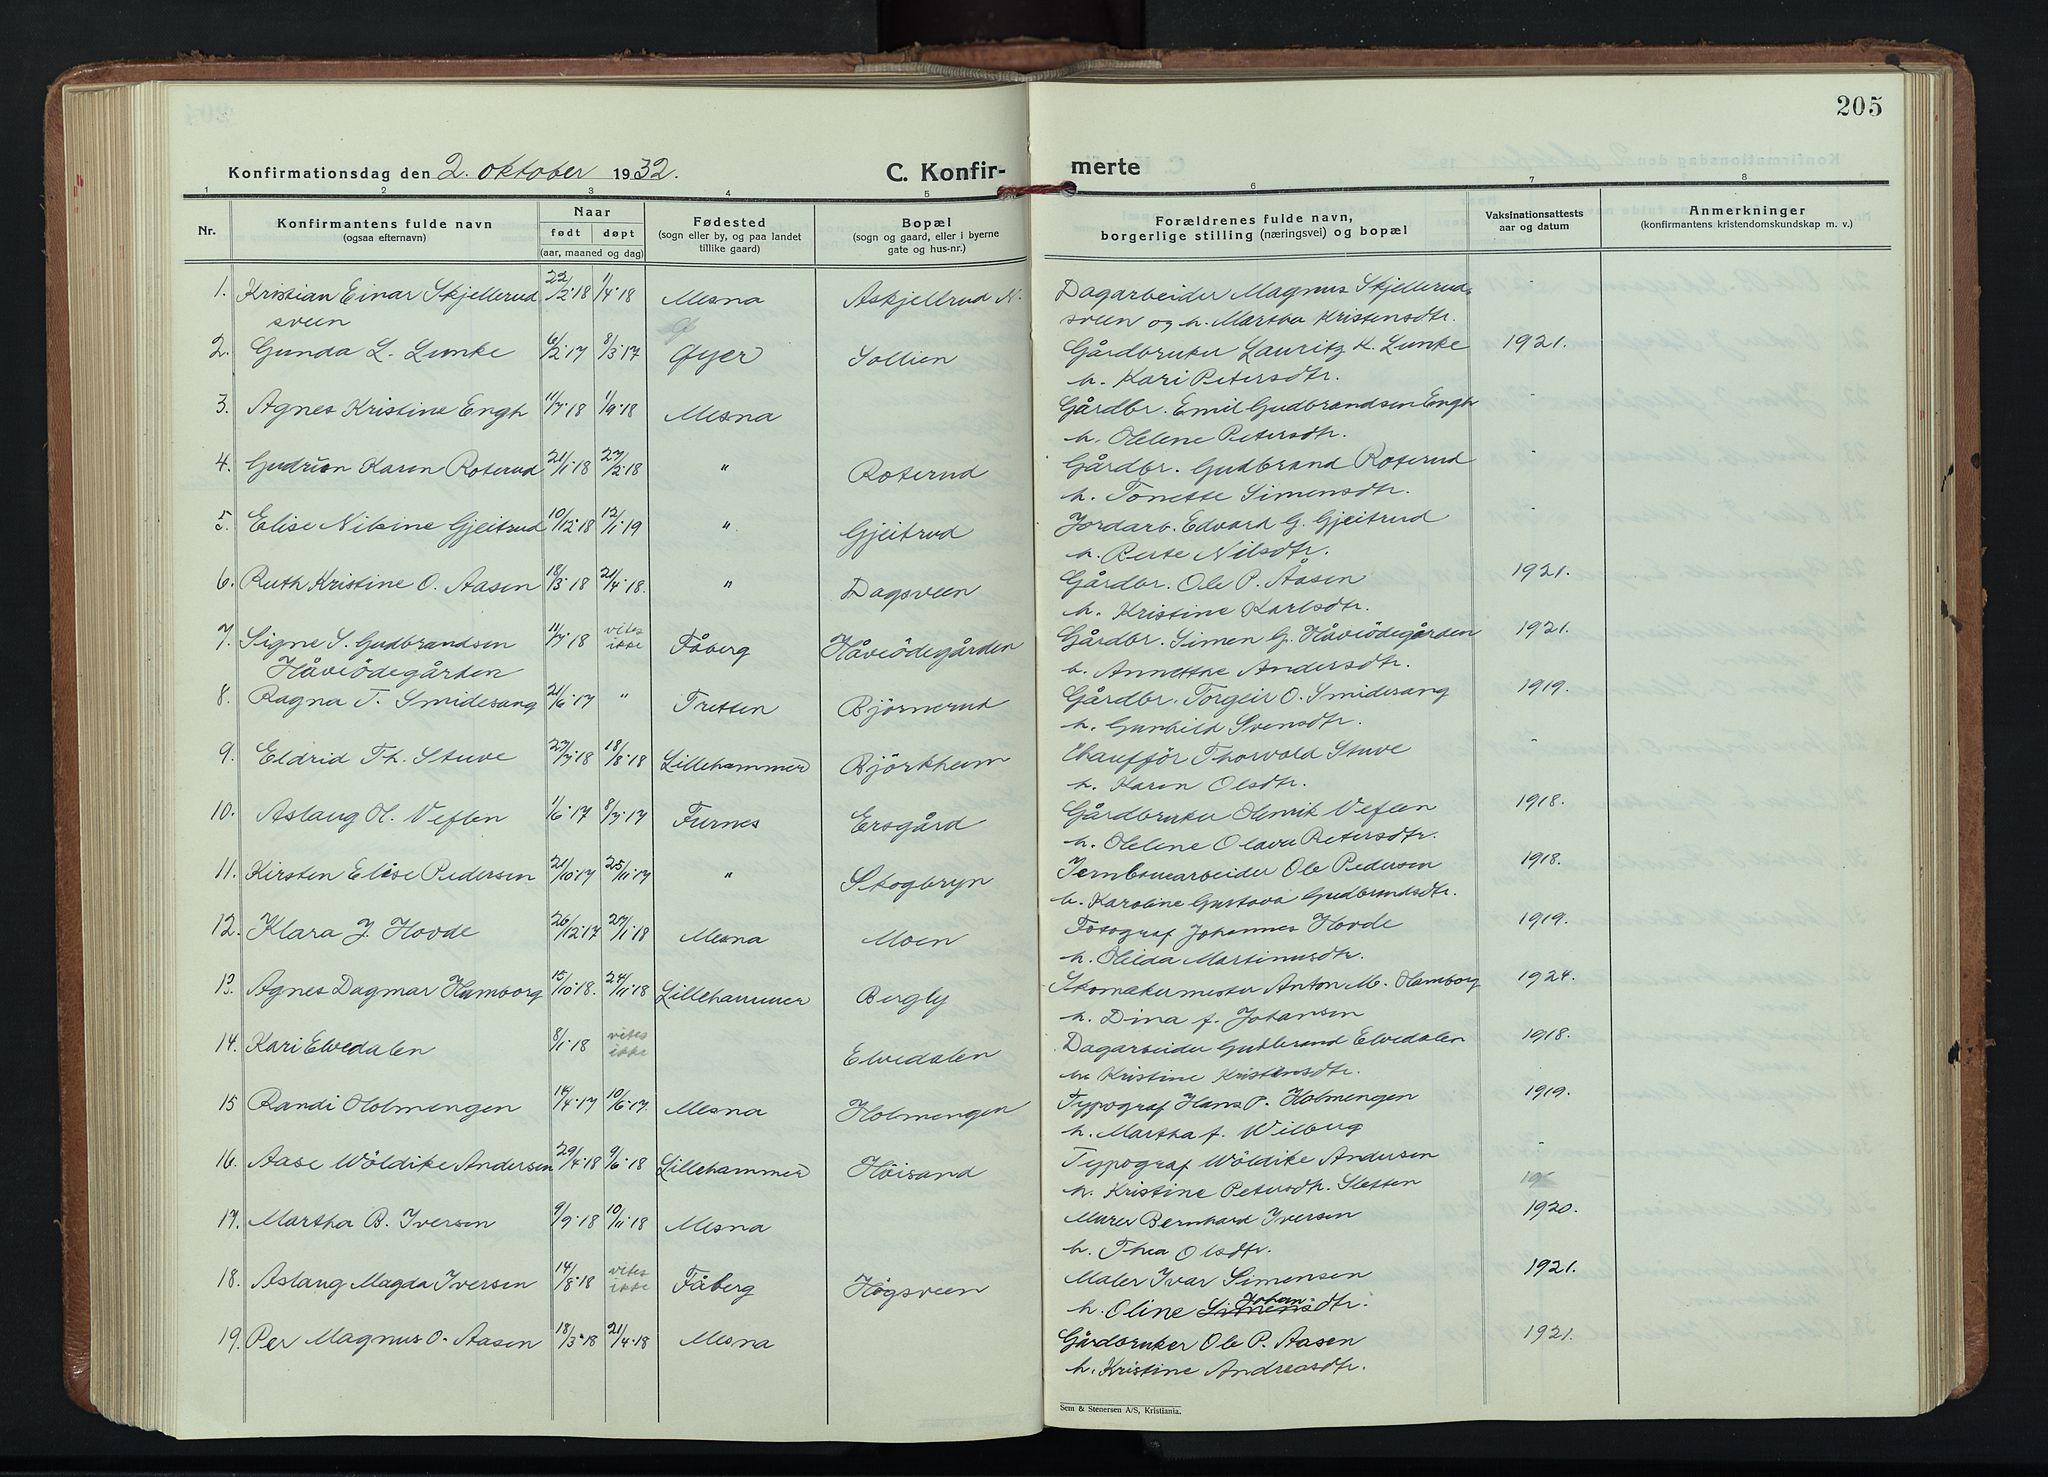 205
Konfirmationsdag den 2. oktober 1932.
C. Konfir- merte
1 2 3 4 5 6 7 8
Nr.
Konfirmantens fulde navn
(ogsaa efternavn)
Naar
født døpt
(aar, maaned og dag)
Fødested
(sogn eller by, og paa landet
tillike gaard)
Bopæl
(sogn og gaard, eller i byerne
gate og hus-nr.)
Forældrenes fulde navn,
borgerlige stilling (næringsvei) og bopæl
Vaksinationsattests
aar og datum
Anmerkninger
(konfirmantens kristendomskundskap m. v.)
1. Kristian Einar Skjellerud 22/2·18 1/4·18 Mesna Askjellrud N. Dagarbeider Magnus Skjellerud- -
sveen sveen og h. Martha Kristensdtr.
2. Gunda L. Lunke 6/2·17 8/3·17 Øyer Sollien Gårdbruker Lauritz K. Lunke 1921.
h. Kari Petersdtr.
3. Agnes Kristine Engh 11/7·18 1/9·18 Mesna Gårdbr. Emil Gudbrandsen Engh -
h. Helene Petersdtr.
4. Gudrun Karen Roterud 21/1·18 27/2·18 " Roterud Gårdbr. Gudbrand Roterud -
h. Tonette Simensdtr.
5. Elise Nilsine Gjeitrud 10/12·18 12/1·19 " Gjeitrud Jordarb. Edvard G. Gjeitrud -
h. Berte Nilsdtr.
6. Ruth Kristine O. Aasen 18/3·18 21/4·18. " Dagsveen Gårdbr. Ole P. Åasen 1921.
h. Kristine Karlsdtr.
7. Signe S. Gudbrandsen 11/7·18 vites ikke Fåberg Håveödegården Gårdbr. Simen G. Håveödegården 1921.
Håveödegården h. Annethe Andersdtr.
8. Ragna T. Smidesang 21/6·17 " Tretten Björnerud Gårdbr. Torgeir O. Smidesang 1919.
h. Gunhild Svensdtr.
9. Eldrid Th. Stuve 27/7·18 18/8·18 Lillehammer Björkheim Chafför Thorvald Stuve -
h. Karen Olsdtr.
10. Aslaug H. Veflen 1/6·17 8/7·17 Furnes Ersgård Gårdbruker Henrik Veflen 1918.
h. Helene Olava Petersdtr.
11. Kirsten Elise Pedersen 21/10·17 25/11·17 " Skogbryn Jernbanearbeider Ole Pedersen 1918.
h. Karoline Gustava Gudbrandsdtr.
12. Klara J. Hovde 26/12·17 27/1·18 Mesna Moen Fotograf Johannes Hovde 1919.
h. Hilda Martinusdtr.
13. Agnes Dagmar Hamborg 15/10·18. 24/11·18 Lillehammer Bergly Skomakermester Anton M. Hamborg 1924.
h. Dina f. Johansen
14. Kari Elvedalen 8/1·18 vites ikke Elvedalen Dagarbeider Gudbrand Elvedalen 1918.
h. Kristine Kristensdtr.
15 Randi Holmengen 14/4·17 10/6·17. Mesna Holmengen Typograf Hans P. Holmengen 1919.
h. Martha f. Wilberg
16. Aase Wöldike Andersen 29/4·18 9/6·18 Lillehammer Höisand Typograf Wöldike Andersen -
h. Kristine Petersdtr. Sletten
17. Martha B. Iversen 9/9·18 10/11·18 Mesna Murer Bernhard Iversen 1920.
h. Thea Olsdtr.
18. Aslaug Magda Iversen 14/8·18 vites ikke Fåberg Høgsveen Maler Ivar Simensen 1921.
h. Oline Simens Johan-dtr.
19. Per Magnus O. Aasen 18/3·18 21/4·18 Mesna Gårdbruker Ole P. Aasen 1921.
h. Kristine Andreasdtr.
Sem & Stenersen A/S, Kristiania.